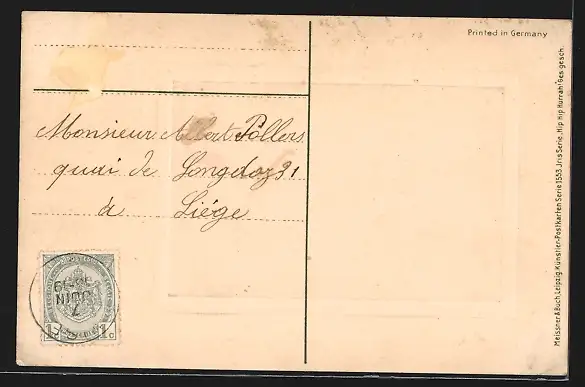 Printed in Germany
Monsieur Albert Pollers
quai de Longdoz 31
à Liége
7
JUIN
1 C 1
Meissner & Buch, Leipzig, Künstler-Postkarten Serie 1553 „Iris Serie, Hip Hip Hurrah“ Ges. gesch.